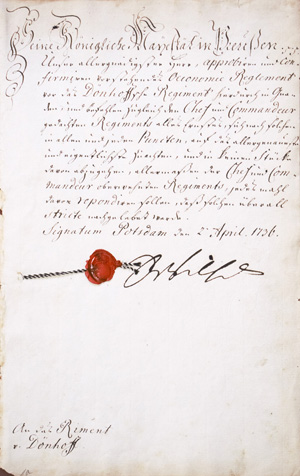 Seine Königliche Majestät in Preußen. p.p.
Unser allergnädigster Herr, approbiren und Con-
firmiren vorstehendes Oeconomie Reglement
vor das Dönhoffsche Regiment hierdurch in Gna-
den, und befehlen zugleich den Chef und Commandeur
gedachten Regiments allen Ernstes, sich nach solchen
in allen und jeden Puncten, auf das allergenaueste
und eigentlichste zu achten, und in keinem Stücke
davon abzugehen, allermaßen der Chef und Com-
mandeur obererwehnten Regiments, jedes mahl
davor repondiren sollen, daß solchen überall
stricte nachgelebet werde.
Signatum Potsdam den 2 April. 1736.
An das Regiment
v. Dönhoff